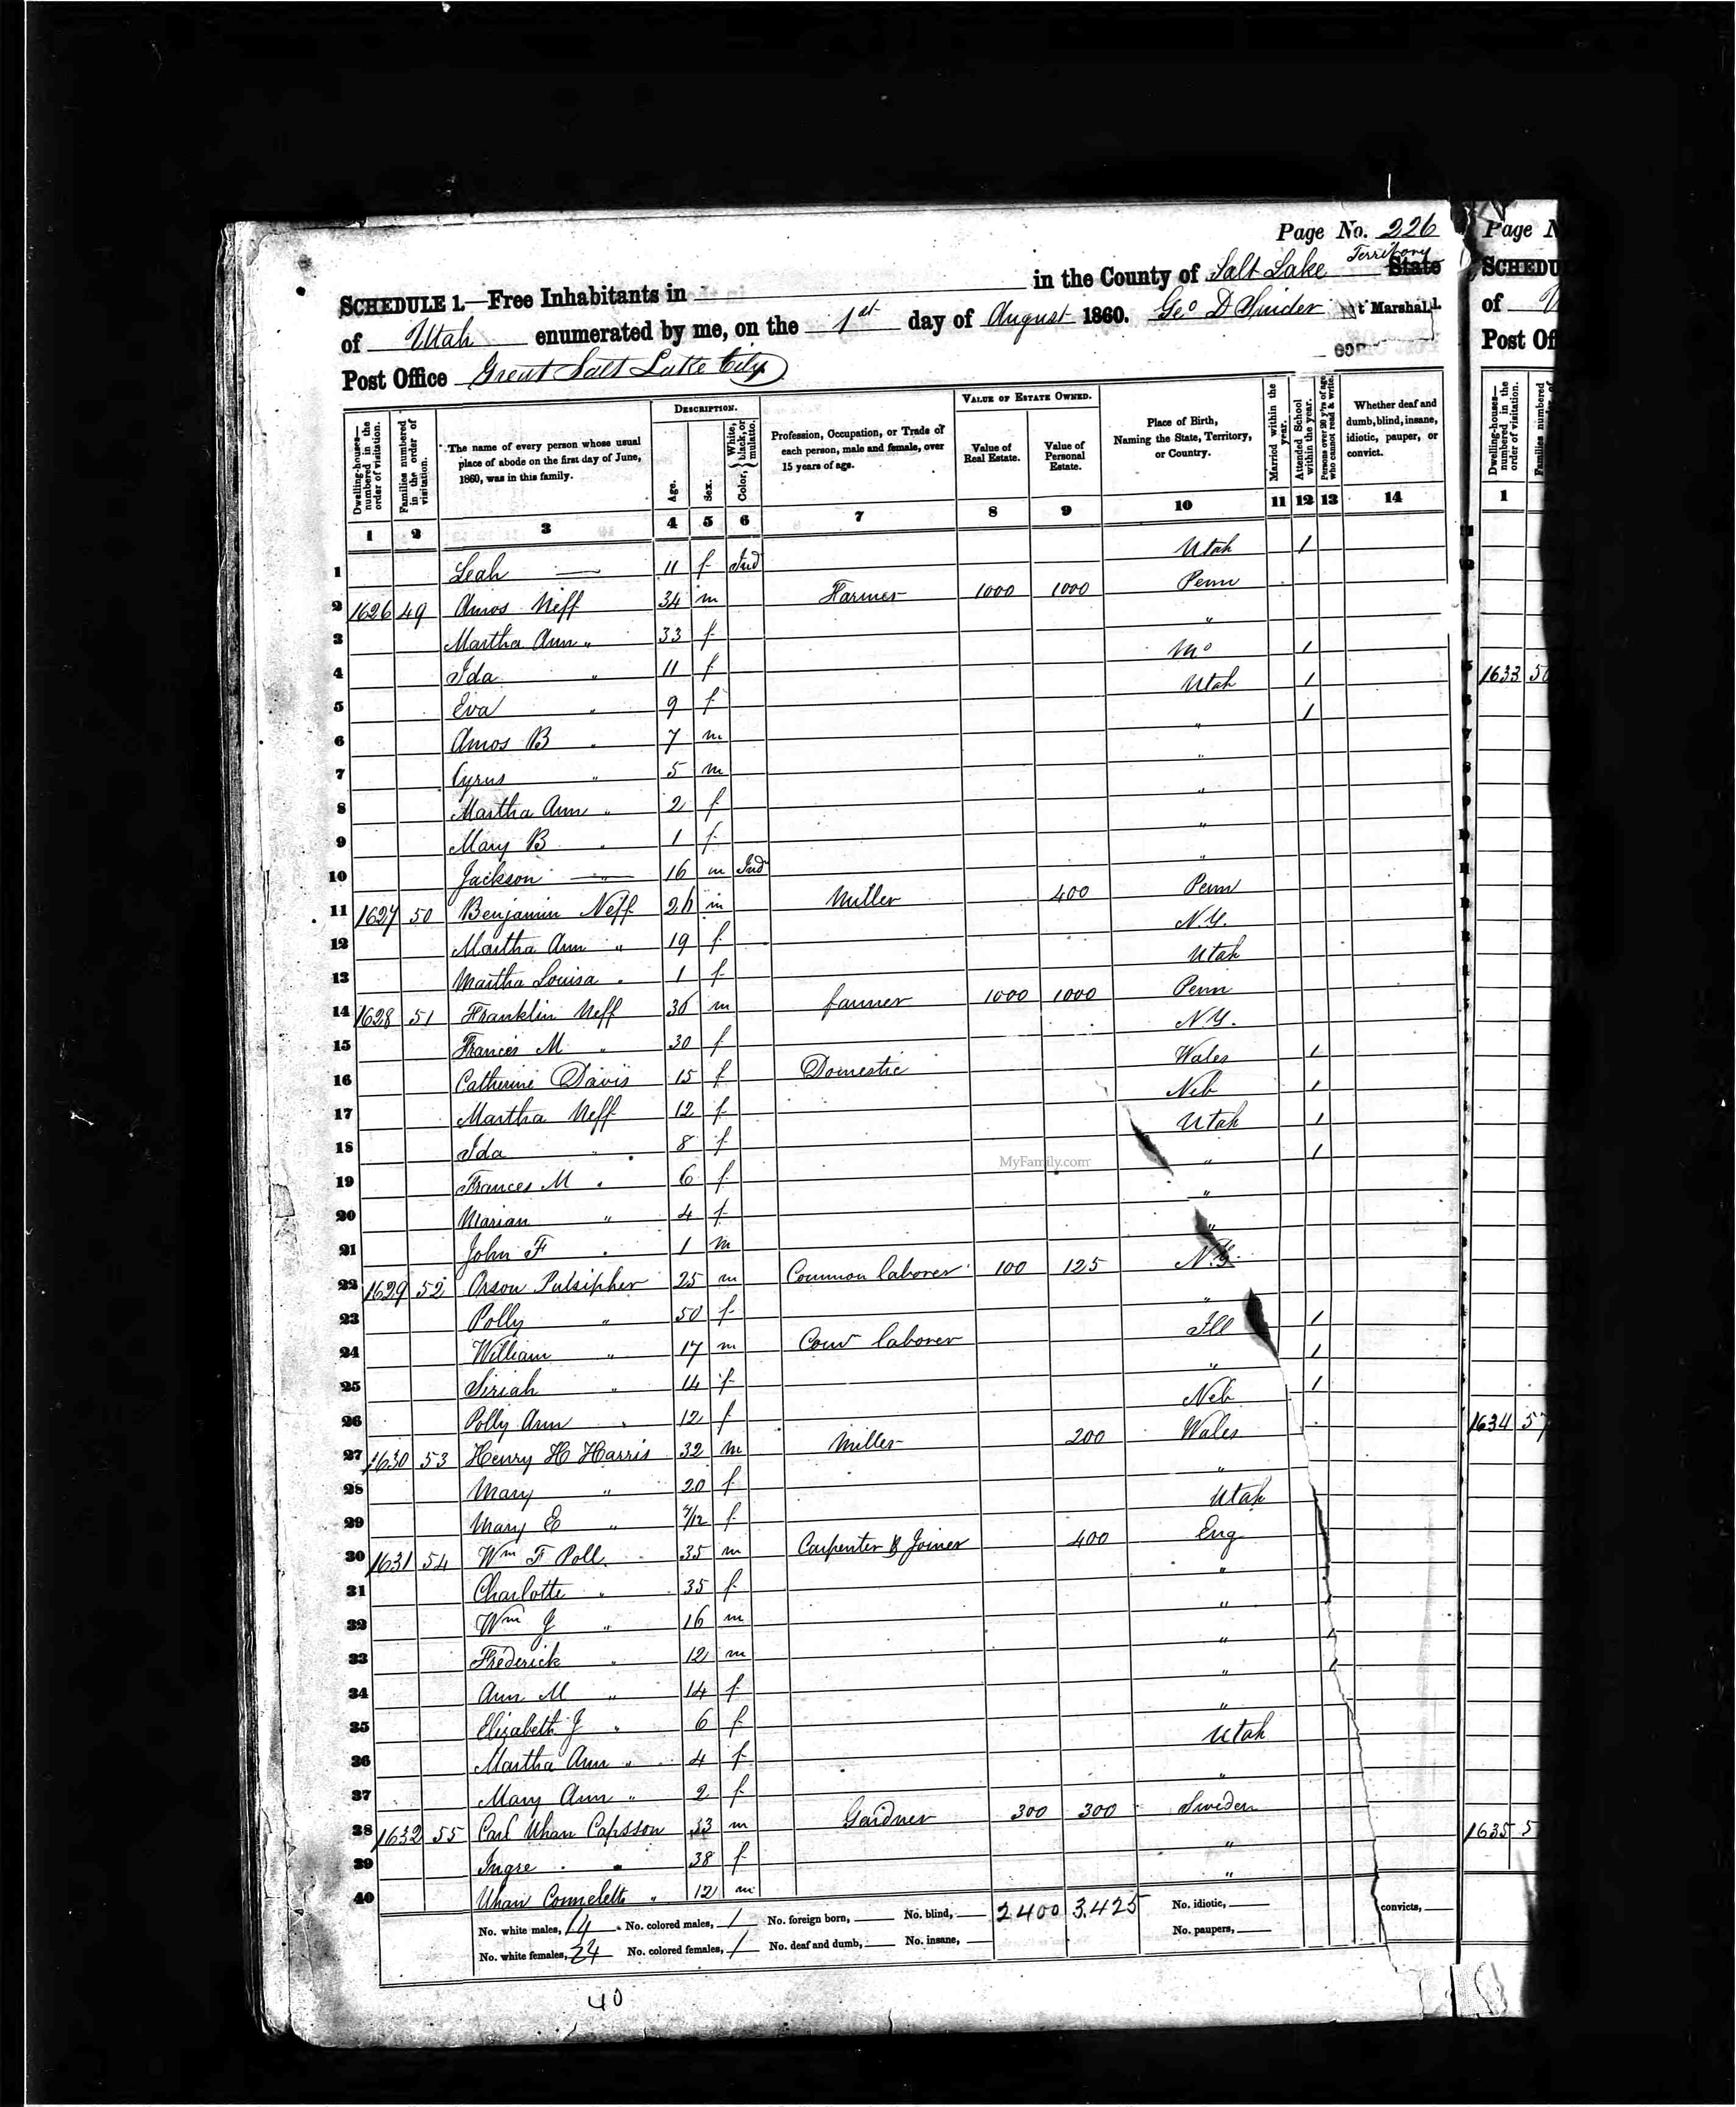 Page No. 226
SCHEDULE 1.—Free Inhabitants in in the County of Salt Lake Territory State
of Utah enumerated by me, on the 1st day of August 1860. Geo D Snider t Marshal.
Post Office Great Salt Lake City
Dwelling-houses—numbered in the order of visitation.
Families numbered in the order of visitation.
The name of every person whose usual place of abode on the first day of June, 1860, was in this family.
DESCRIPTION.
Age.
Sex.
Color, { White, black, or mulatto.
Profession, Occupation, or Trade of each person, male and female, over 15 years of age.
VALUE OF ESTATE OWNED.
Value of Real Estate.
Value of Personal Estate.
Place of Birth, Naming the State, Territory, or Country.
Married within the year.
Attended School within the year.
Persons over 20 y'rs of age who cannot read & write.
Whether deaf and dumb, blind, insane, idiotic, pauper, or convict.
1 2 3 4 5 6 7 8 9 10 11 12 13 14
1 Leah — 11 f Ind Utah 1
2 1626 49 Amos Neff 34 m Farmer 1000 1000 Penn
3 Martha Ann " 33 f "
4 Ida " 11 f Mo 1
5 Eva " 9 f Utah 1
6 Amos B " 7 m " 1
7 Cyrus " 5 m "
8 Martha Ann " 2 f "
9 Mary B " 1 f "
10 Jackson — " 16 m Ind "
11 1627 50 Benjamin Neff 26 m Miller 400 Penn
12 Martha Ann " 19 f N.Y.
13 Martha Louisa " 1 f Utah
14 1628 51 Franklin Neff 36 m farmer 1000 1000 Penn
15 Frances M " 30 f N.Y.
16 Catherine Davis 15 f Domestic Wales 1
17 Martha Neff 12 f Neb 1
18 Ida " 8 f Utah 1
19 Frances M " 6 f " 1
20 Marian " 4 f "
21 John F " 1 m "
22 1629 52 Orson Pulsipher 25 m Common laborer 100 125 N.Y.
23 Polly " 50 f "
24 William " 17 m Com laborer Ill 1
25 Siriah " 14 f " 1
26 Polly Ann " 12 f Neb 1
27 1630 53 Henry H Harris 32 m Miller 200 Wales
28 Mary " 20 f "
29 Mary E " 7/12 f Utah
30 1631 54 Wm F Poll 35 m Carpenter & Joiner 400 Eng
31 Charlotte " 35 f "
32 Wm J " 16 m "
33 Frederick " 12 m " 1
34 Ann M " 14 f " 1
35 Elizabeth J " 6 f "
36 Martha Ann " 4 f Utah
37 Mary Ann " 2 f "
38 1632 55 Carl Uhan Capsson 33 m Gardner 300 300 Sweden
39 Ingre " 38 f "
40 Uhan " 12 m "
No. white males, 14 No. colored males, 1 No. foreign born, No. blind, 2400 3.425 No. idiotic, convicts,
No. white females, 24 No. colored females, 1 No. deaf and dumb, No. insane, No. paupers,
40
MyFamily.com
Page
SCHEDU
of
Post Of
Dwelling-houses—numbered in the order of visitation.
Families numbered
1
1633
1634 57
1635 5